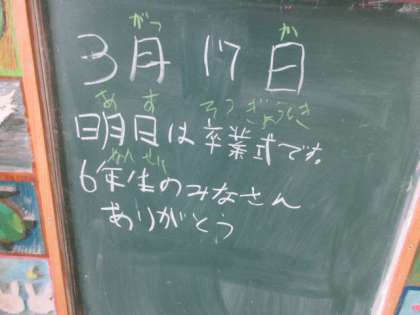 がつ か
3月17日
あす そつぎょうしき
明日は卒業式です。
ねんせい
6年生のみなさん
ありがとう